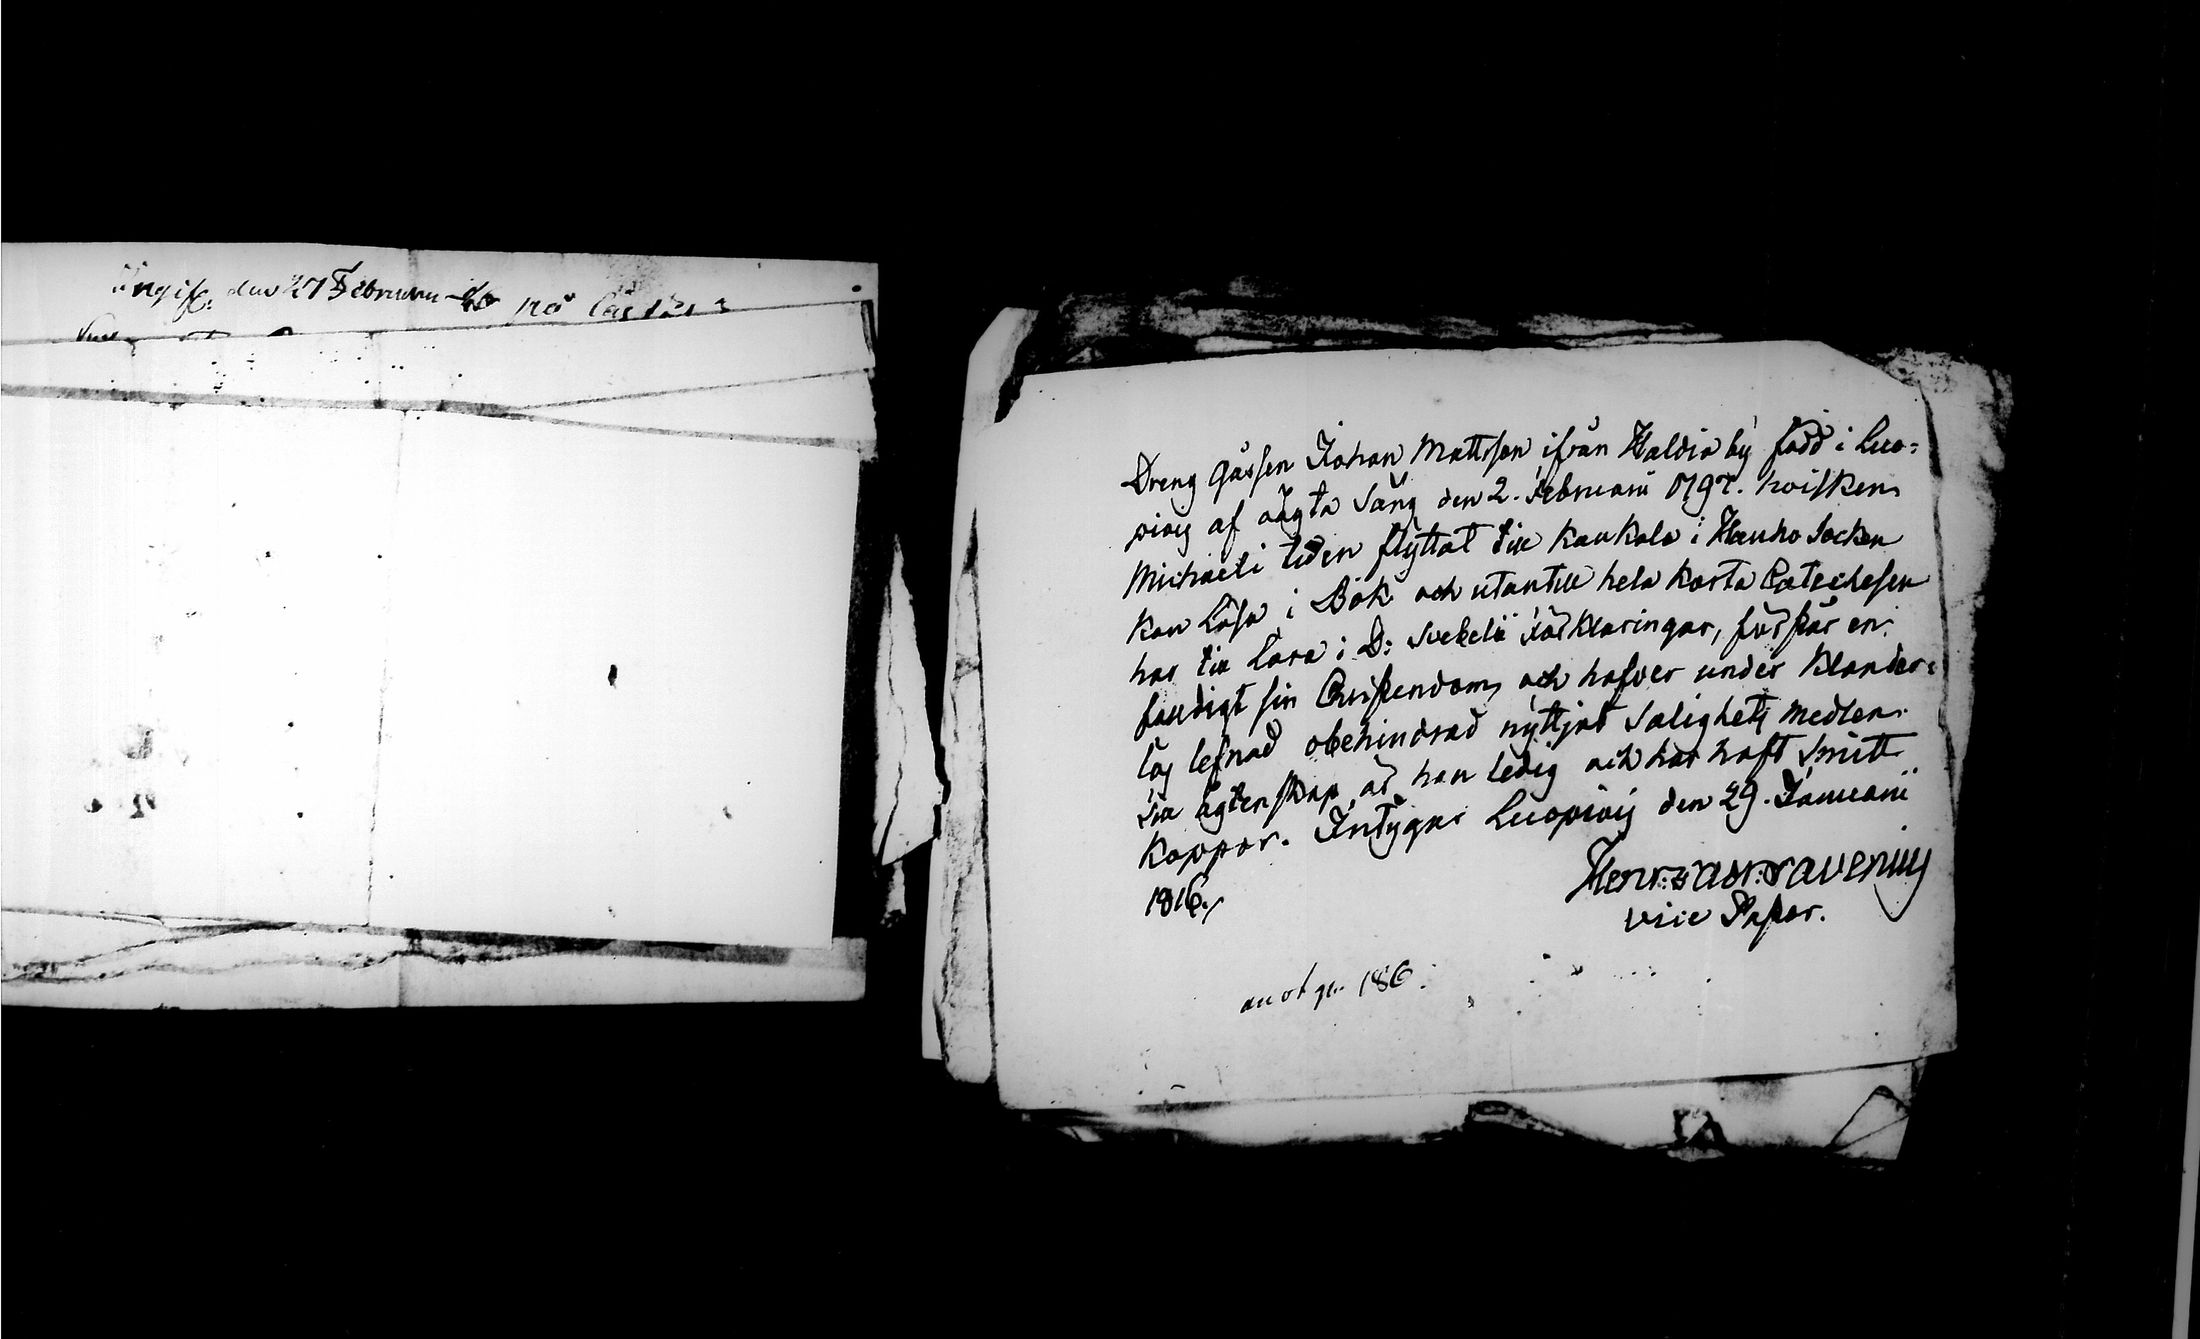 Ingif. den 27 Februarii
Dreng gåssen Johan Mattsson ifrån Haldia by född i Luo=
piois af äägta Säng den 2. Februarii 1797. hvilken
Michaeli tiden flyttat till Kaukola i Hauho Socken
kan Läsa i Bok och utantill hela korta Catechesen
har till Lära i D: Svebelii förklaringar, förstår en=
faldigt sin Christendom, och hafver under klander=
lös lefnad obehindrad nyttjat Salighets medlen.
till ägtenskap är han ledig och har haft Smitt
Koppor. Intygar Luopiois den 29. Januarii
1816.
vice Pastor.
186.